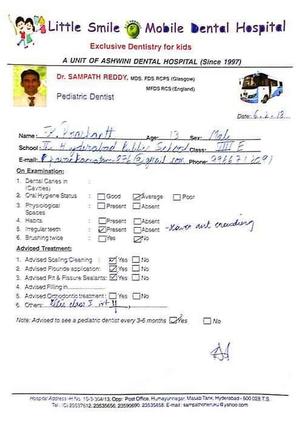 Little Smile Mobile Dental Hospital
Exclusive Dentistry for kids
A UNIT OF ASHWINI DENTAL HOSPITAL (Since 1997)
Dr. SAMPATH REDDY, MDS, FDS RCPS (Glasgow)
MFDS RCS (England)
Pediatric Dentist
Date:
Name: Prashant Age: 13 Sex: Male
School: Hyderabad Public School Class: VIII E
E-mail: @gmail.com Phone:
On Examination:
1. Dental Caries in (Cavities)
2. Oral Hygiene Status : Good Average Poor
3. Physiological Spaces : Present Absent
4. Habits : Present Absent
5. Irregular teeth : Present Absent - Lower ant crowding
6. Brushing twice : Yes No
Advised Treatment:
1. Advised Scaling Cleaning : Yes No
2. Advised Flouride application : Yes No
3. Advised Pit & Fissure Sealants : Yes No
4. Advised Filling in
5. Advised Orthodontic treatment : Yes No
6. Others:
Note: Advised to see a pediatric dentist every 3-6 months Yes No
Hospital Address: H No. 10-3-304/13, Opp: Post Office, Humayunnagar, Masab Tank, Hyderabad - 500 028 T.S.